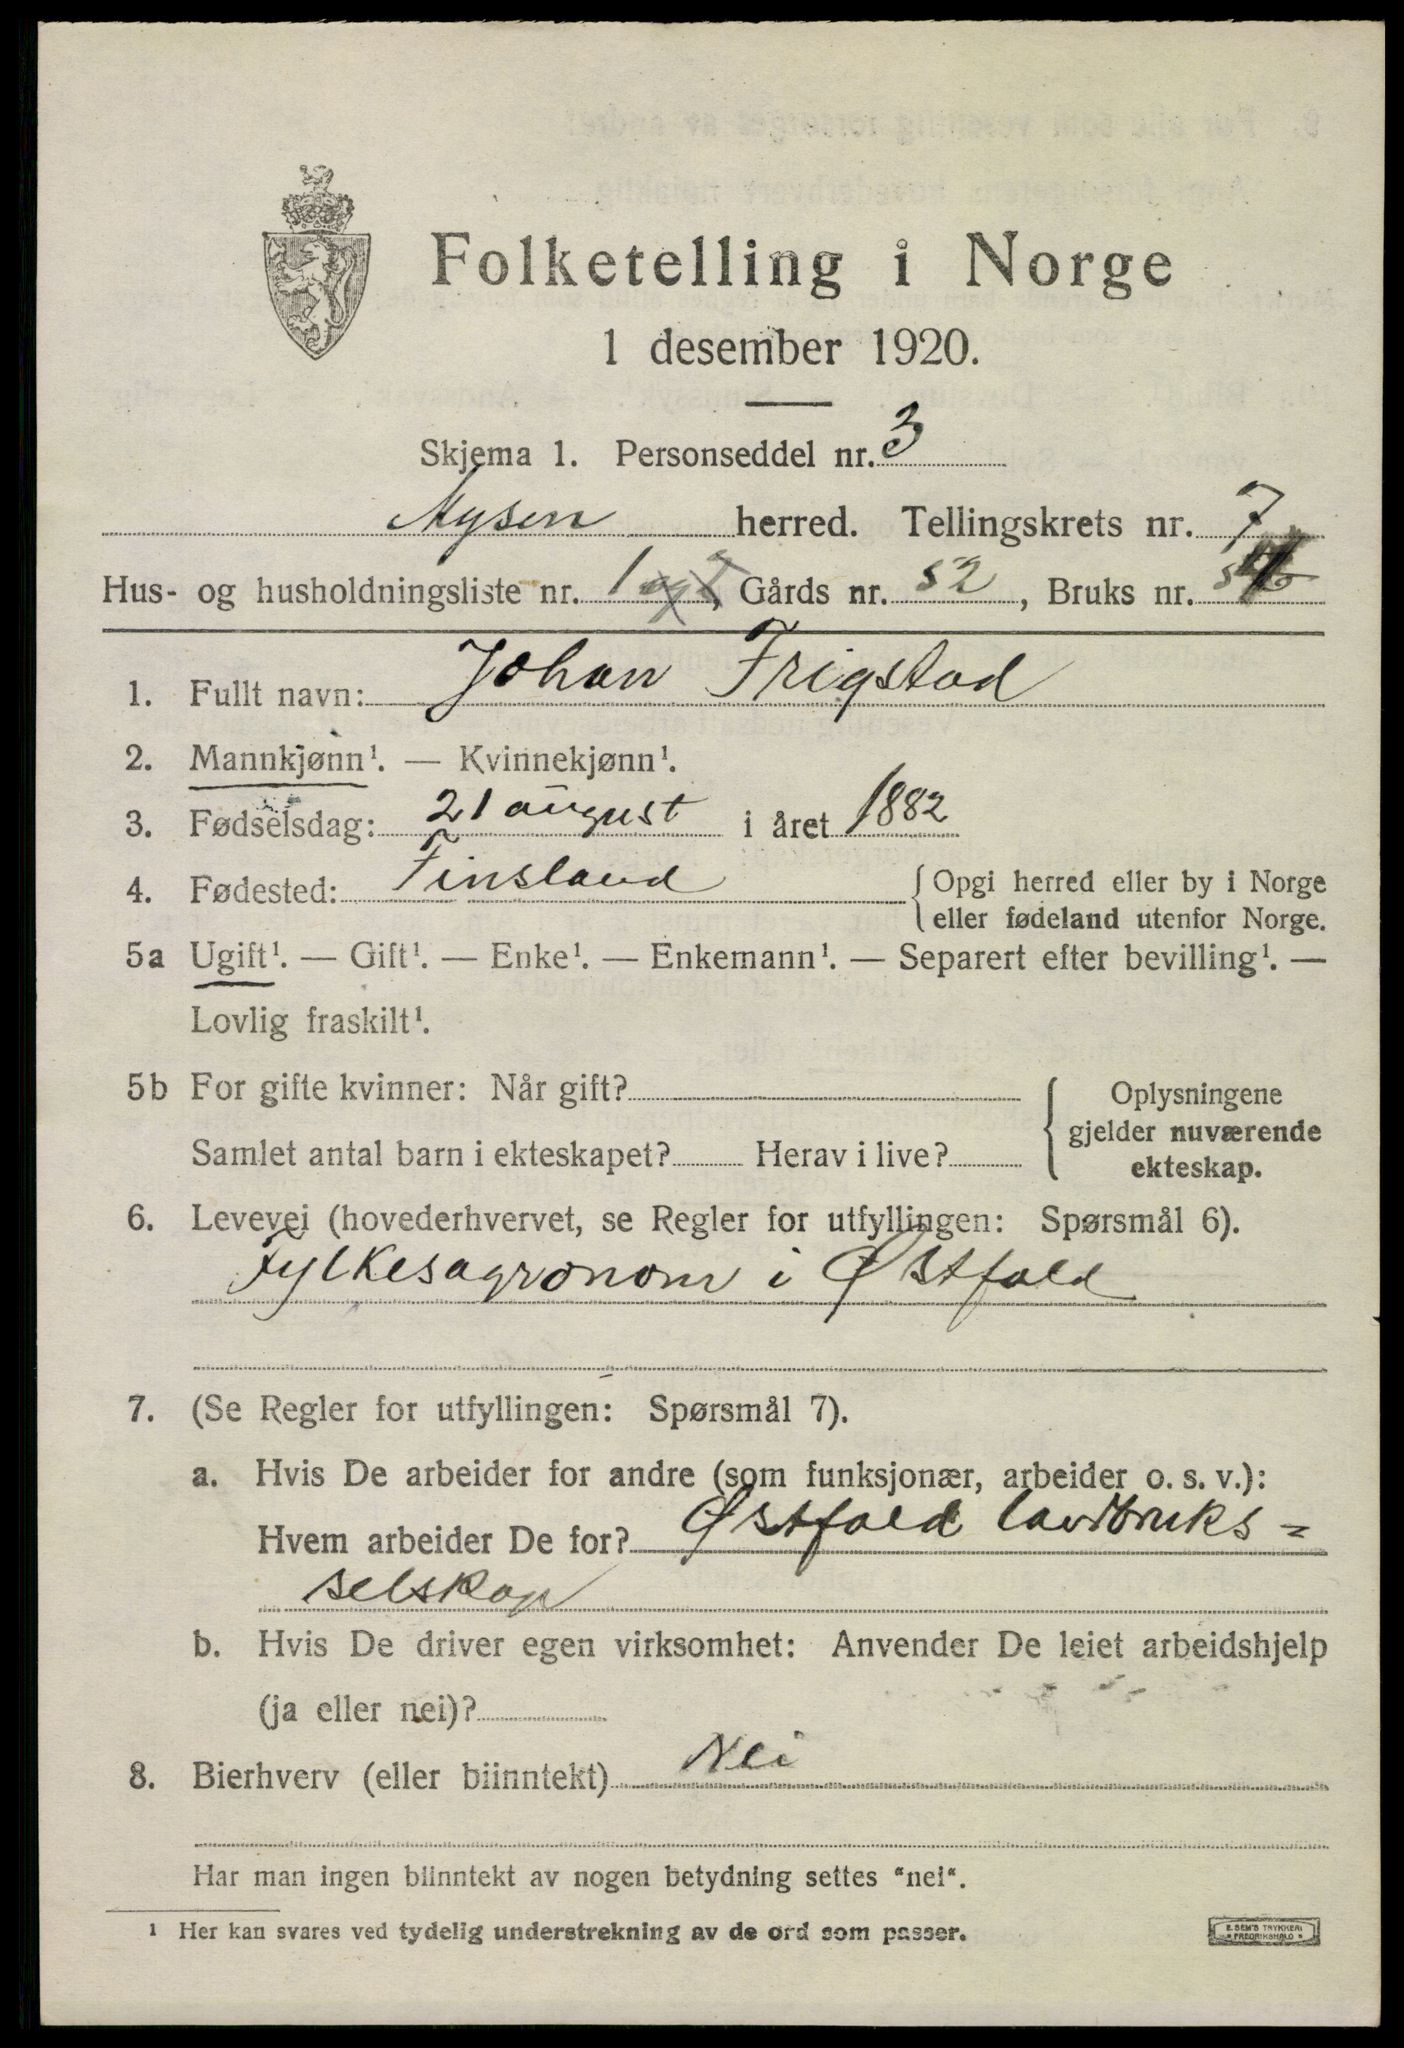 Folketelling i Norge
1 desember 1920.
Skjema 1. Personseddel nr. 3
Mysen herred. Tellingskrets nr. 7
Hus- og husholdningsliste nr. 1, Gårds nr. 52, Bruks nr.
1. Fullt navn: Johan Frigstad
2. Mannkjønn¹. — Kvinnekjønn¹.
3. Fødselsdag: 21 august i året 1882
4. Fødested: Finsland { Opgi herred eller by i Norge
eller fødeland utenfor Norge.
5a Ugift¹. — Gift¹. — Enke¹. — Enkemann¹. — Separert efter bevilling¹. —
Lovlig fraskilt¹.
5b For gifte kvinner: Når gift?
Samlet antal barn i ekteskapet? Herav i live?
{ Oplysningene
gjelder nuværende
ekteskap.
6. Levevei (hovederhvervet, se Regler for utfyllingen: Spørsmål 6).
Fylkesagronom i Østfold
7. (Se Regler for utfyllingen: Spørsmål 7).
a. Hvis De arbeider for andre (som funksjonær, arbeider o. s. v.):
Hvem arbeider De for? Østfold landbruks=
selskap
b. Hvis De driver egen virksomhet: Anvender De leiet arbeidshjelp
(ja eller nei)?
8. Bierhverv (eller biinntekt) Nei
Har man ingen biinntekt av nogen betydning settes "nei".
1 Her kan svares ved tydelig understrekning av de ord som passer.
E. SEM'S TRYKKERI
FREDRIKSHALD